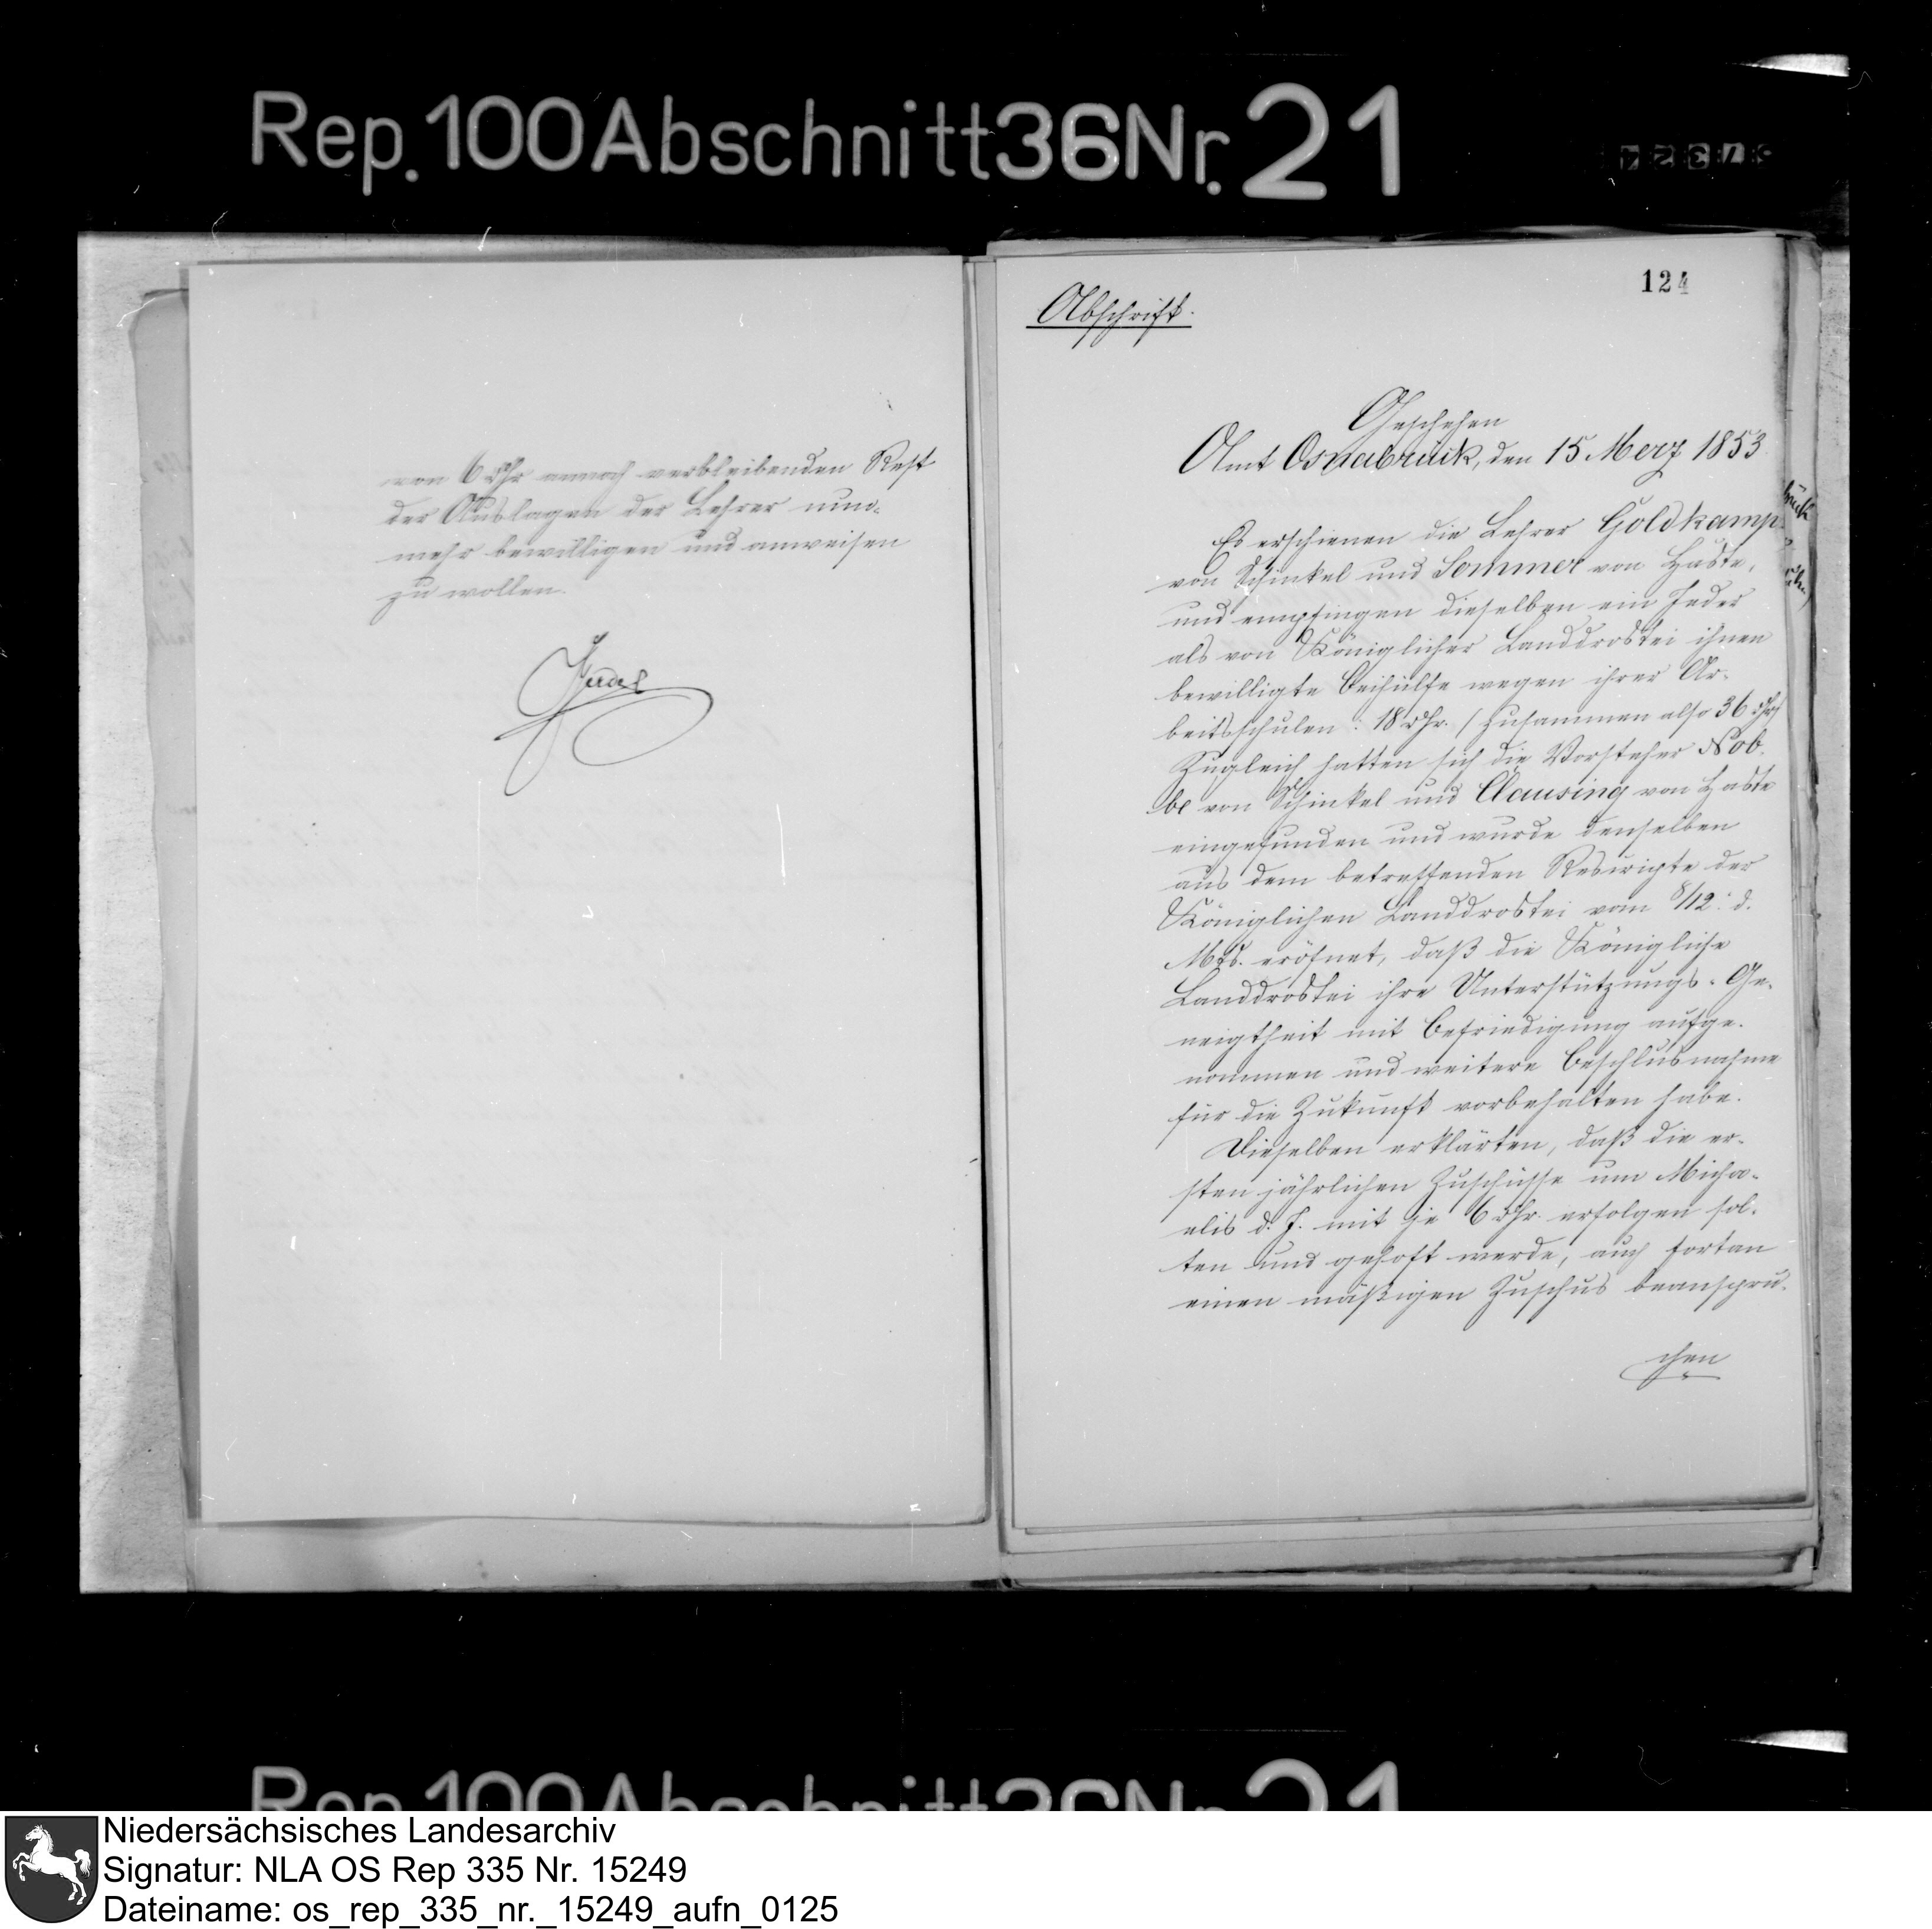 Rep. 100 Abschnitt 36 Nr. 21
von 6 Thr annoch verbleibenden Rest
der Auslagen der Lehrer nun-
mehr bewilligen und anweisen
zu wollen.
124
Abschrift.
Geschehen
Amt Osnabrück, den 15 Merz 1853.
Es erschienen die Lehrer Goldkamp
von Schinkel und Sommer von Haste,
und empfingen dieselben ein Jeder
als von Königlicher Landdrostei ihnen
bewilligte Beihülfe wegen ihrer Ar-
beitsschulen: 18 Thr. (zusammen also 36 Thr)
Zugleich hatten sich die Vorsteher Nob-
be von Schinkel und Clausing von Haste
eingefunden und wurde denselben
aus dem betreffenden Rescripte der
Königlichen Landdrostei vom 8/12. d.
Mts. eröfnet, daß die Königliche
Landdrostei ihre Unterstützungs-Ge-
neigtheit mit Befriedigung aufge-
nommen und weitere Beschlusnahme
für die Zukunft vorbehalten habe.
Dieselben erklärten, daß die er-
sten jährlichen Zuschüsse um Micha-
elis d. J. mit je 6 Thr. erfolgen sol-
ten und gehoft werde, auch fortan
einen mäßigen Zuschus beanspru-
chen
Rep. 100 Abschnitt 36 Nr. 21
Niedersächsisches Landesarchiv
Signatur: NLA OS Rep 335 Nr. 15249
Dateiname: os_rep_335_nr._15249_aufn_0125